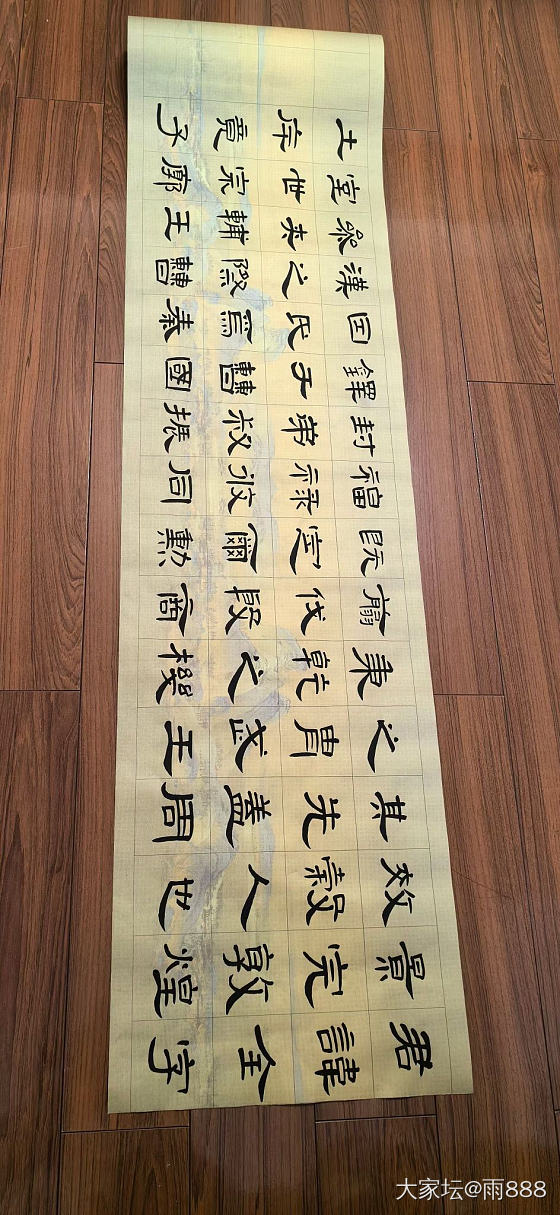 君諱全字
景完敦煌
效穀人也
其先蓋周
之胄武王
秉乾之機
翦伐殷商
既定爾勳
福祿攸同
封弟叔振
鐸于曹國
因氏焉秦
漢之際曹
參夾輔王
室世宗廓
土斥竟子
大家坛@雨888